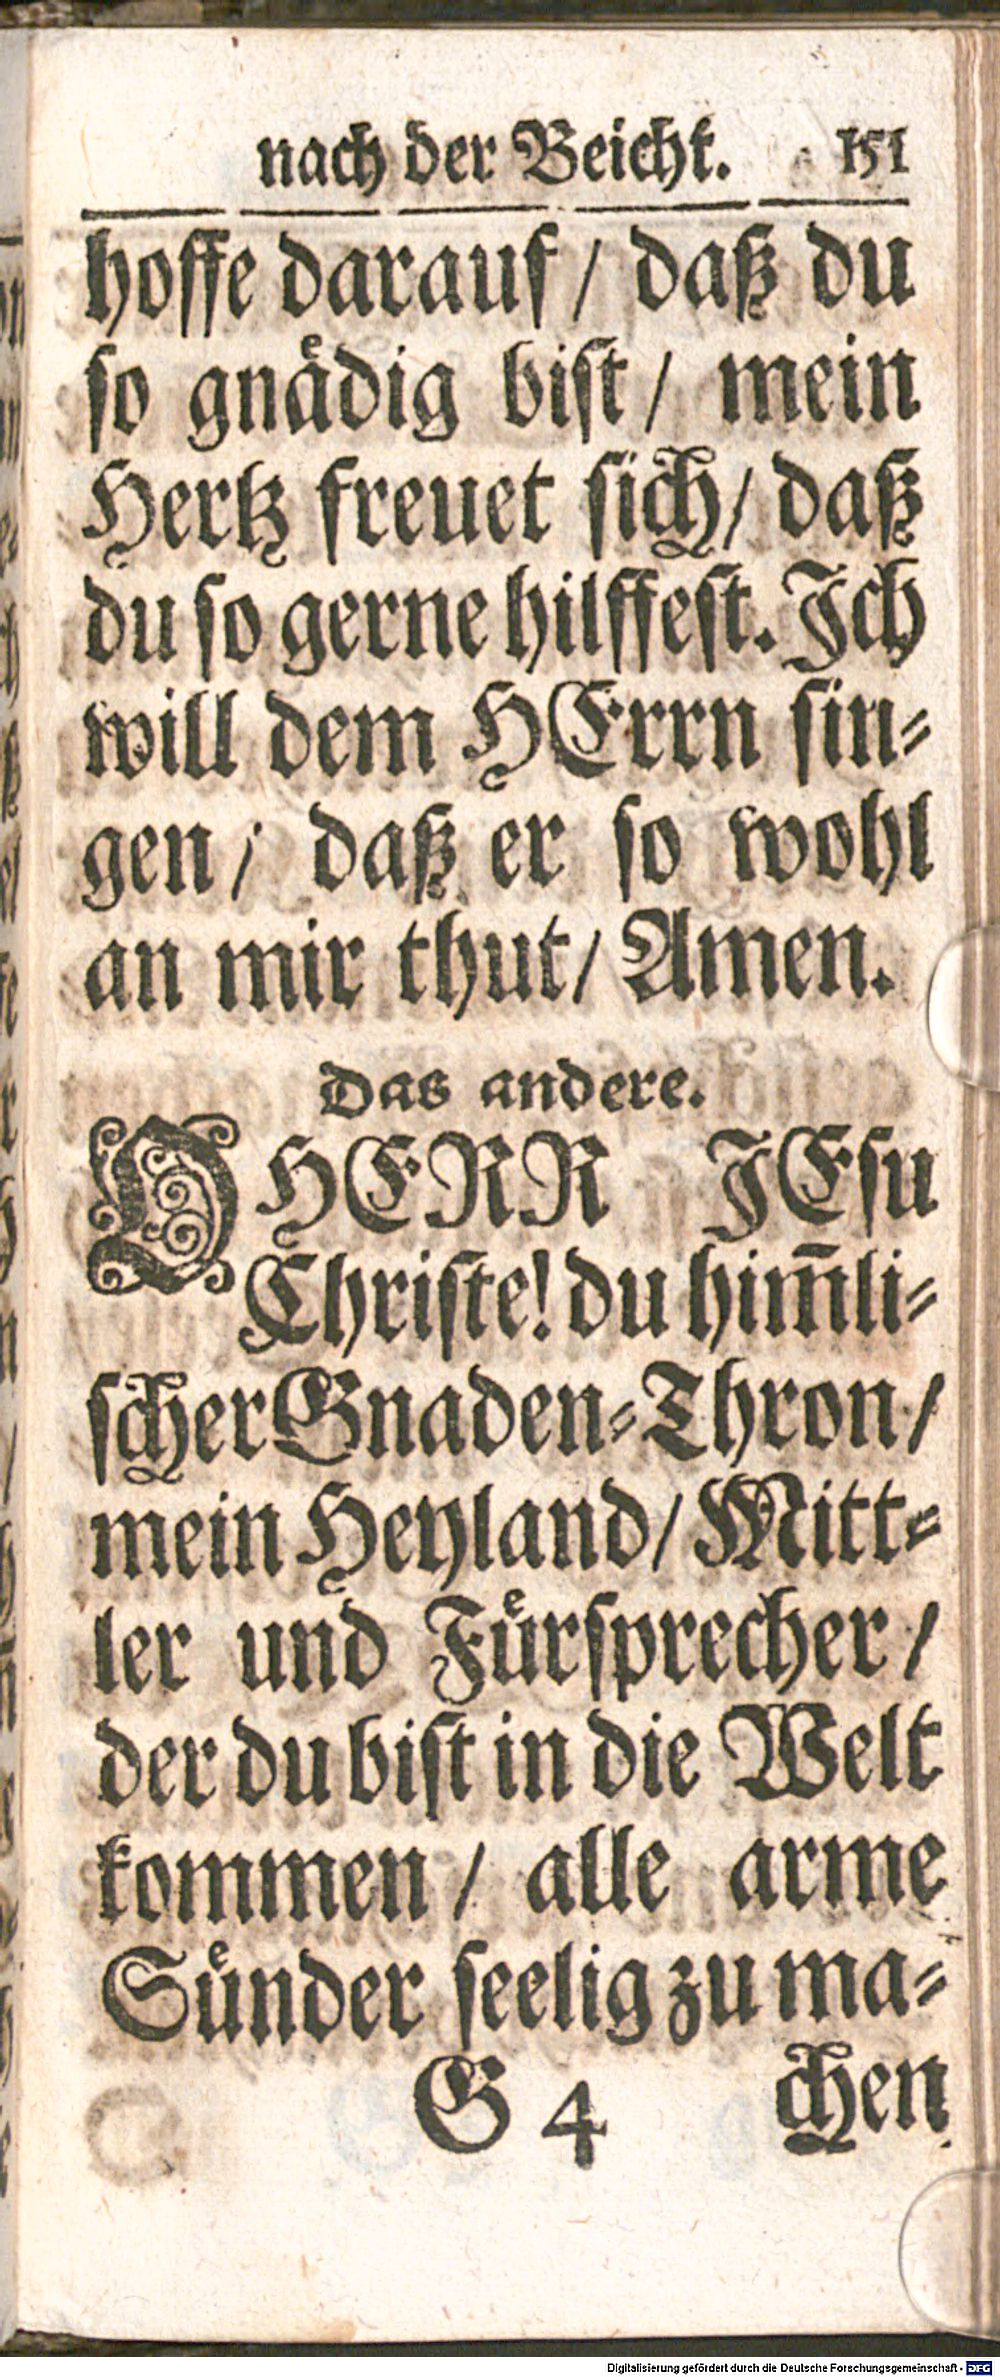 nach der Beicht. 151
hoffe darauf / daß du
so gnaͤdig bist / mein
Hertz freuet sich / daß
du so gerne hilffest. Ich
will dem HErrn sin-
gen / daß er so wohl
an mir thut / Amen.
Das andere.
O HERR JEsu
Christe! du him̃li-
scher Gnaden-Thron /
mein Heyland / Mitt-
ler und Fuͤrsprecher /
der du bist in die Welt
kommen / alle arme
Suͤnder seelig zu ma-
G 4 chen
Digitalisierung gefördert durch die Deutsche Forschungsgemeinschaft - DFG